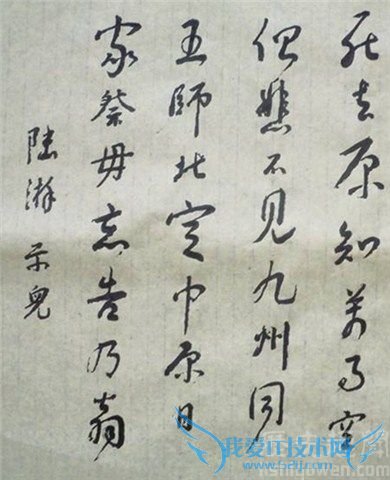 死去原知萬事空
但悲不見九州同
王師北定中原日
家祭毋忘告乃翁
陸游 示兒
我爱IT技术网